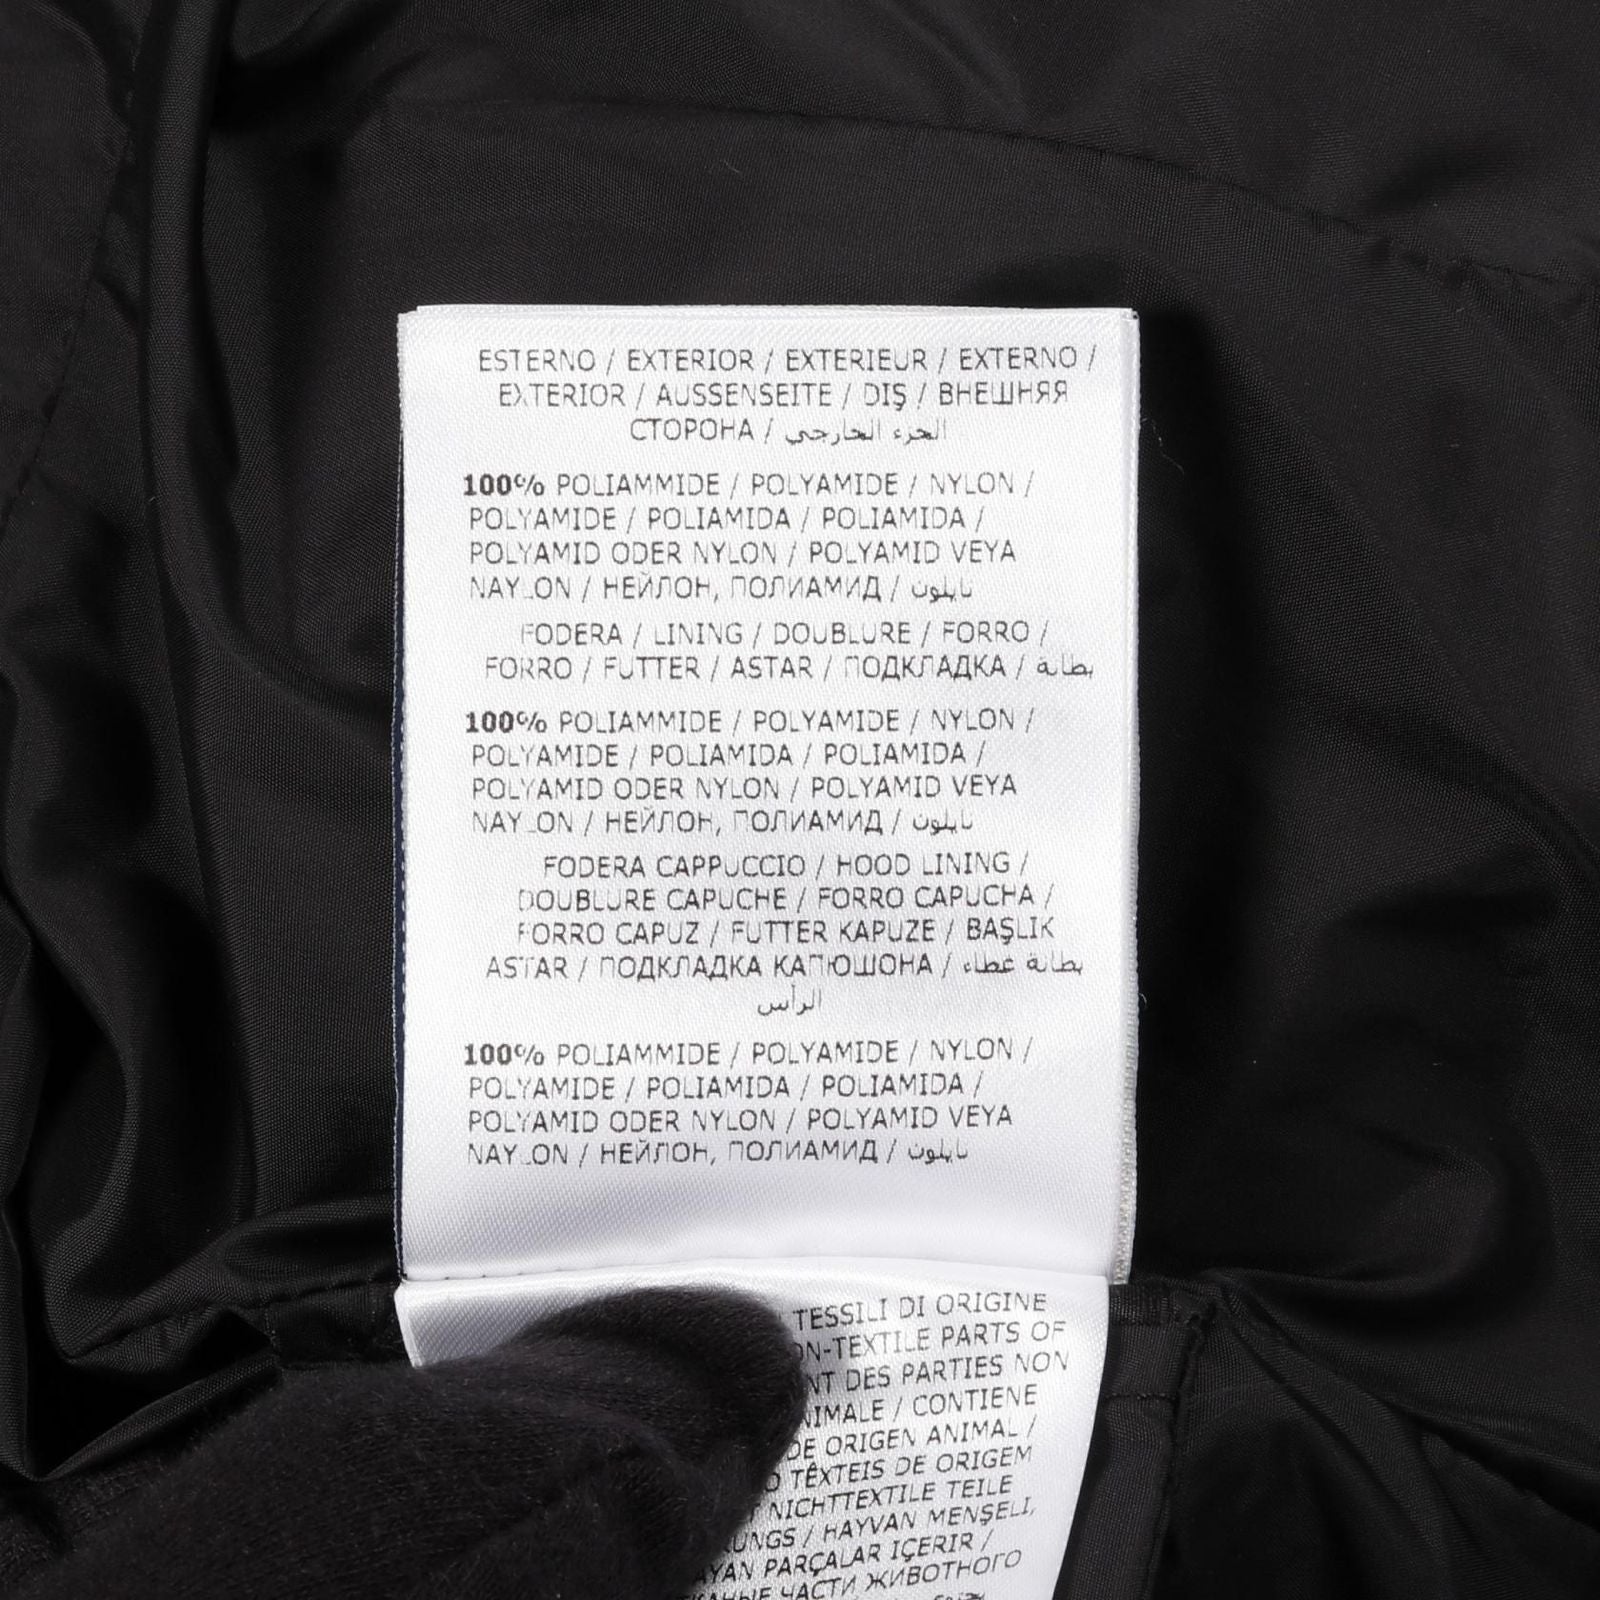 ESTERNO / EXTERIOR / EXTERIEUR / EXTERNO /
EXTERIOR / AUSSENSEITE / DIŞ / ВНЕШНЯЯ
СТОРОНА / الجزء الخارجي
100% POLIAMMIDE / POLYAMIDE / NYLON /
POLYAMIDE / POLIAMIDA / POLIAMIDA /
POLYAMID ODER NYLON / POLYAMID VEYA
NAYLON / НЕЙЛОН, ПОЛИАМИД / نايلون
FODERA / LINING / DOUBLURE / FORRO /
FORRO / FUTTER / ASTAR / ПОДКЛАДКА / بطانة
100% POLIAMMIDE / POLYAMIDE / NYLON /
POLYAMIDE / POLIAMIDA / POLIAMIDA /
POLYAMID ODER NYLON / POLYAMID VEYA
NAYLON / НЕЙЛОН, ПОЛИАМИД / نايلون
FODERA CAPPUCCIO / HOOD LINING /
DOUBLURE CAPUCHE / FORRO CAPUCHA /
FORRO CAPUZ / FUTTER KAPUZE / BAŞLIK
ASTAR / ПОДКЛАДКА КАПЮШОНА / بطانة غطاء
الرأس
100% POLIAMMIDE / POLYAMIDE / NYLON /
POLYAMIDE / POLIAMIDA / POLIAMIDA /
POLYAMID ODER NYLON / POLYAMID VEYA
NAYLON / НЕЙЛОН, ПОЛИАМИД / نايلون
TESSILI DI ORIGINE
-TEXTILE PARTS OF
DES PARTIES NON
/ CONTIENE
DE ORIGEN ANIMAL /
TÊXTEIS DE ORIGEM
NICHTTEXTILE TEILE
/ HAYVAN MENŞELİ,
PARÇALAR İÇERİR /
ЧАСТИ ЖИВОТНОГО